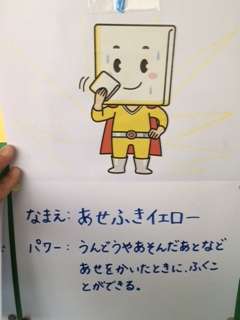 なまえ：あせふきイエロー
パワー：うんどうやあそんだあとなど
あせをかいたときに、ふくこ
とができる。